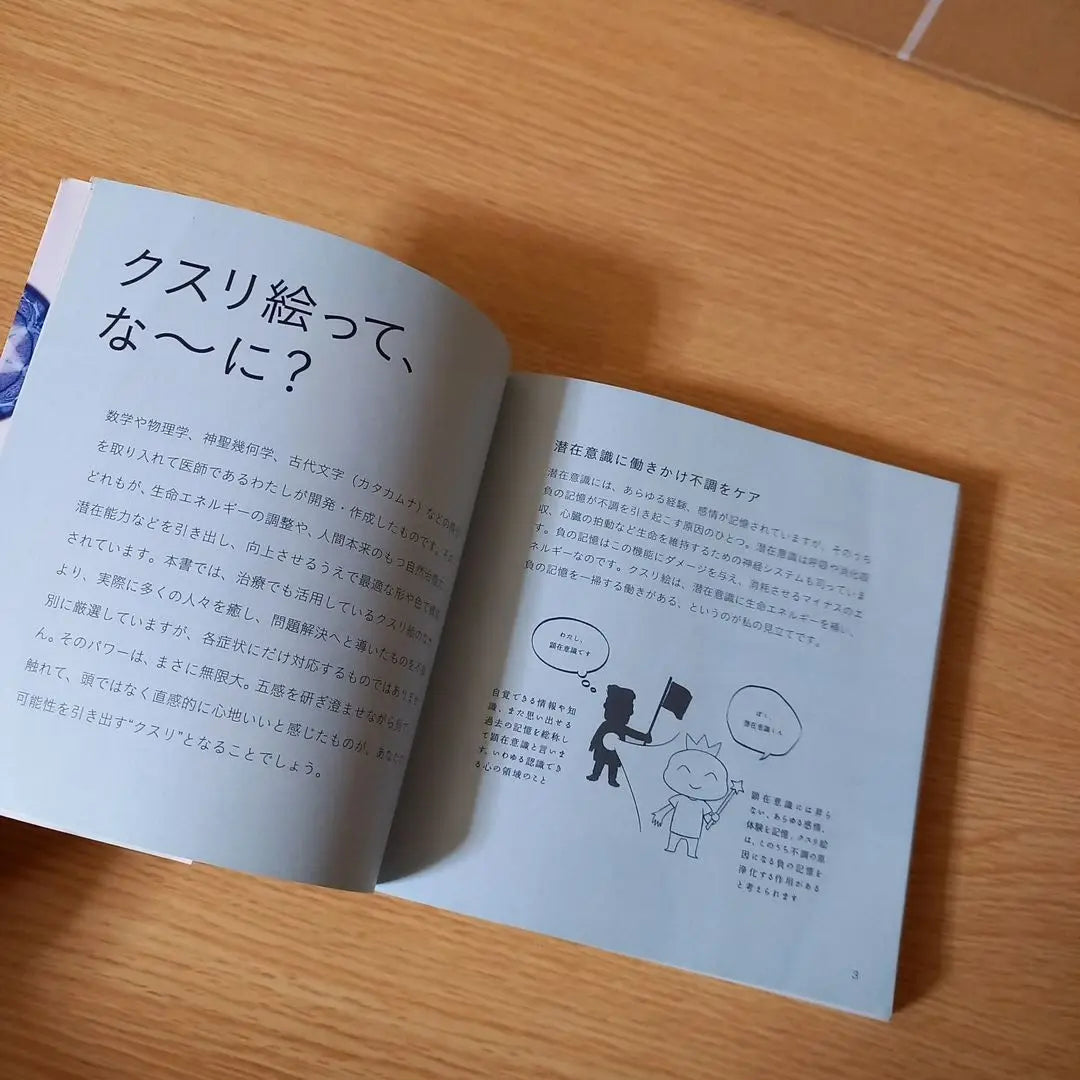 クスリ絵って、
な〜に？
数学や物理学、神聖幾何学、古代文字（カタカムナ）などの
を取り入れて医師であるわたしが開発・作成したものです。
どれもが、生命エネルギーの調整や、人間本来のもつ自然治癒力、
潜在能力などを引き出し、向上させるうえで最適な形や色で構成
されています。本書では、治療でも活用しているクスリ絵のなか
より、実際に多くの人々を癒し、問題解決へと導いたものを
別に厳選していますが、各症状にだけ対応するものではありませ
ん。そのパワーは、まさに無限大。五感を研ぎ澄ませながら
触れて、頭ではなく直感的に心地いいと感じたものが、あなたの
可能性を引き出す“クスリ”となることでしょう。
潜在意識に働きかけ不調をケア
潜在意識には、あらゆる経験、感情が記憶されていますが、そのうち
負の記憶が不調を引き起こす原因のひとつ。潜在意識は呼吸や消化吸
収、心臓の拍動など生命を維持するための神経システムも司っていま
す。負の記憶はこの機能にダメージを与え、消耗させるマイナスのエ
ネルギーなのです。クスリ絵は、潜在意識に生命エネルギーを補い、
負の記憶を一掃する働きがある、というのが私の見立てです。
わたし、
顕在意識です
自覚できる情報や知
識、また思い出せる
過去の記憶を総称し
て顕在意識と言いま
す。いわゆる認識でき
る心の領域のこと
ぼく、
潜在意識くん
顕在意識には昇ら
ない、あらゆる感情、
体験を記憶。クスリ絵
は、このうち不調の原
因になる負の記憶を
浄化する作用がある
と考えられます
3